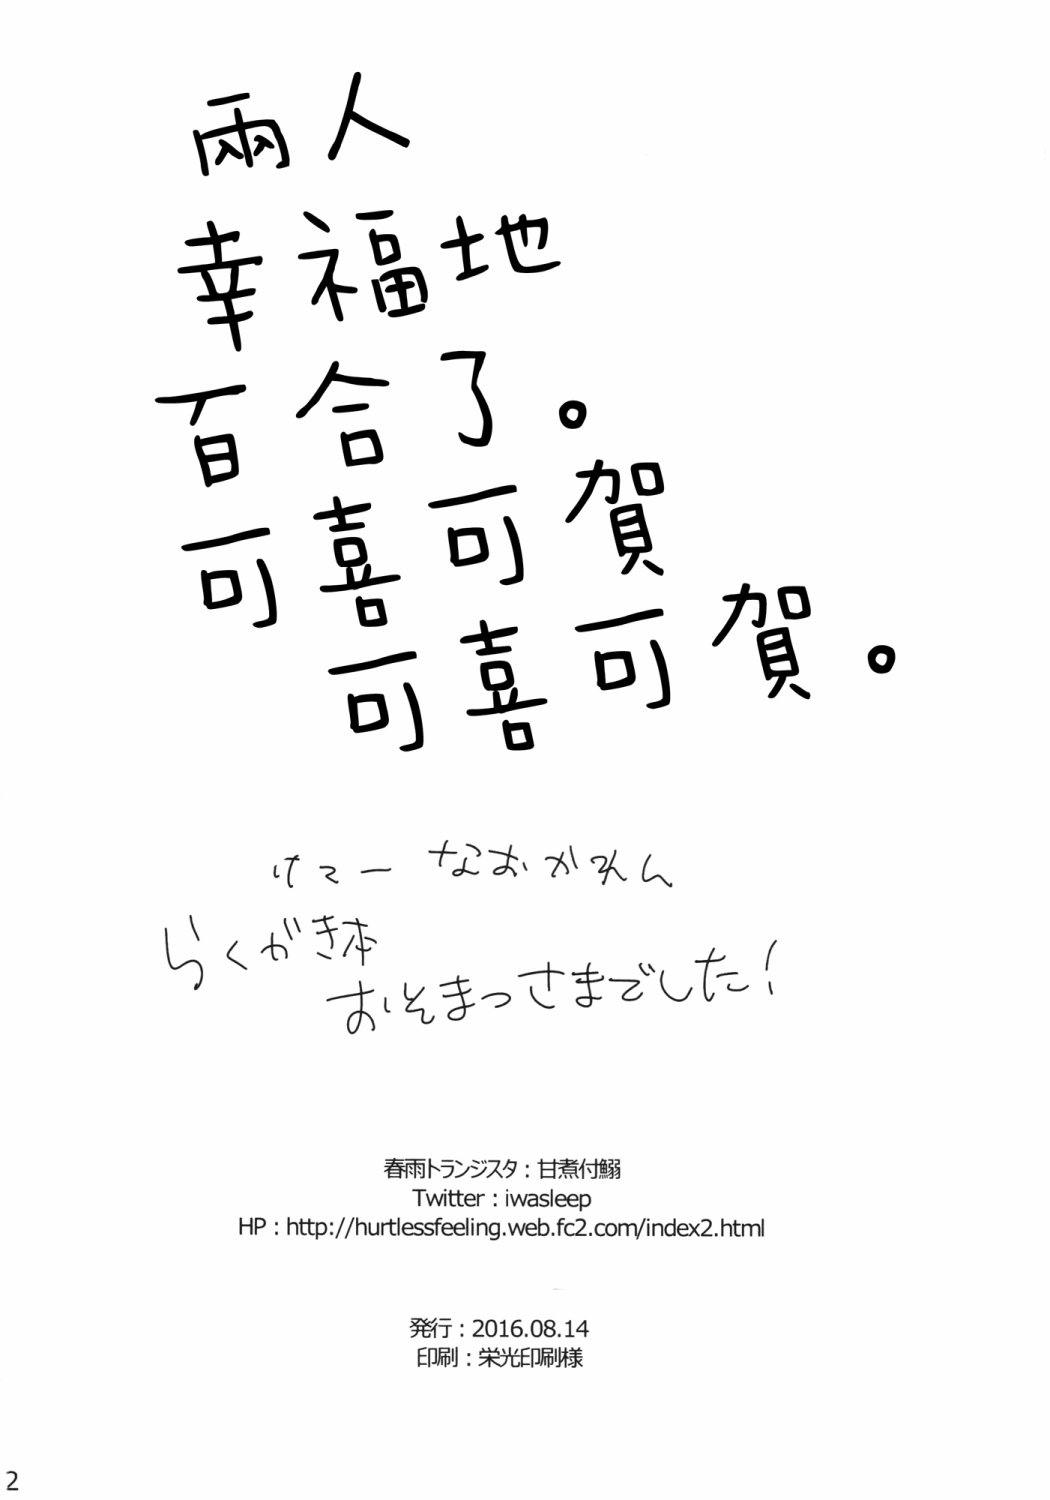 兩人
幸福地
百合了。
可喜可賀
可喜可賀。
けてーなおかれん
らくがき本
おそまつさまでした!
春雨トランジスタ : 甘煮付鰯
Twitter : iwasleep
HP : http://hurtlessfeeling.web.fc2.com/index2.html
発行 : 2016.08.14
印刷 : 栄光印刷様
2